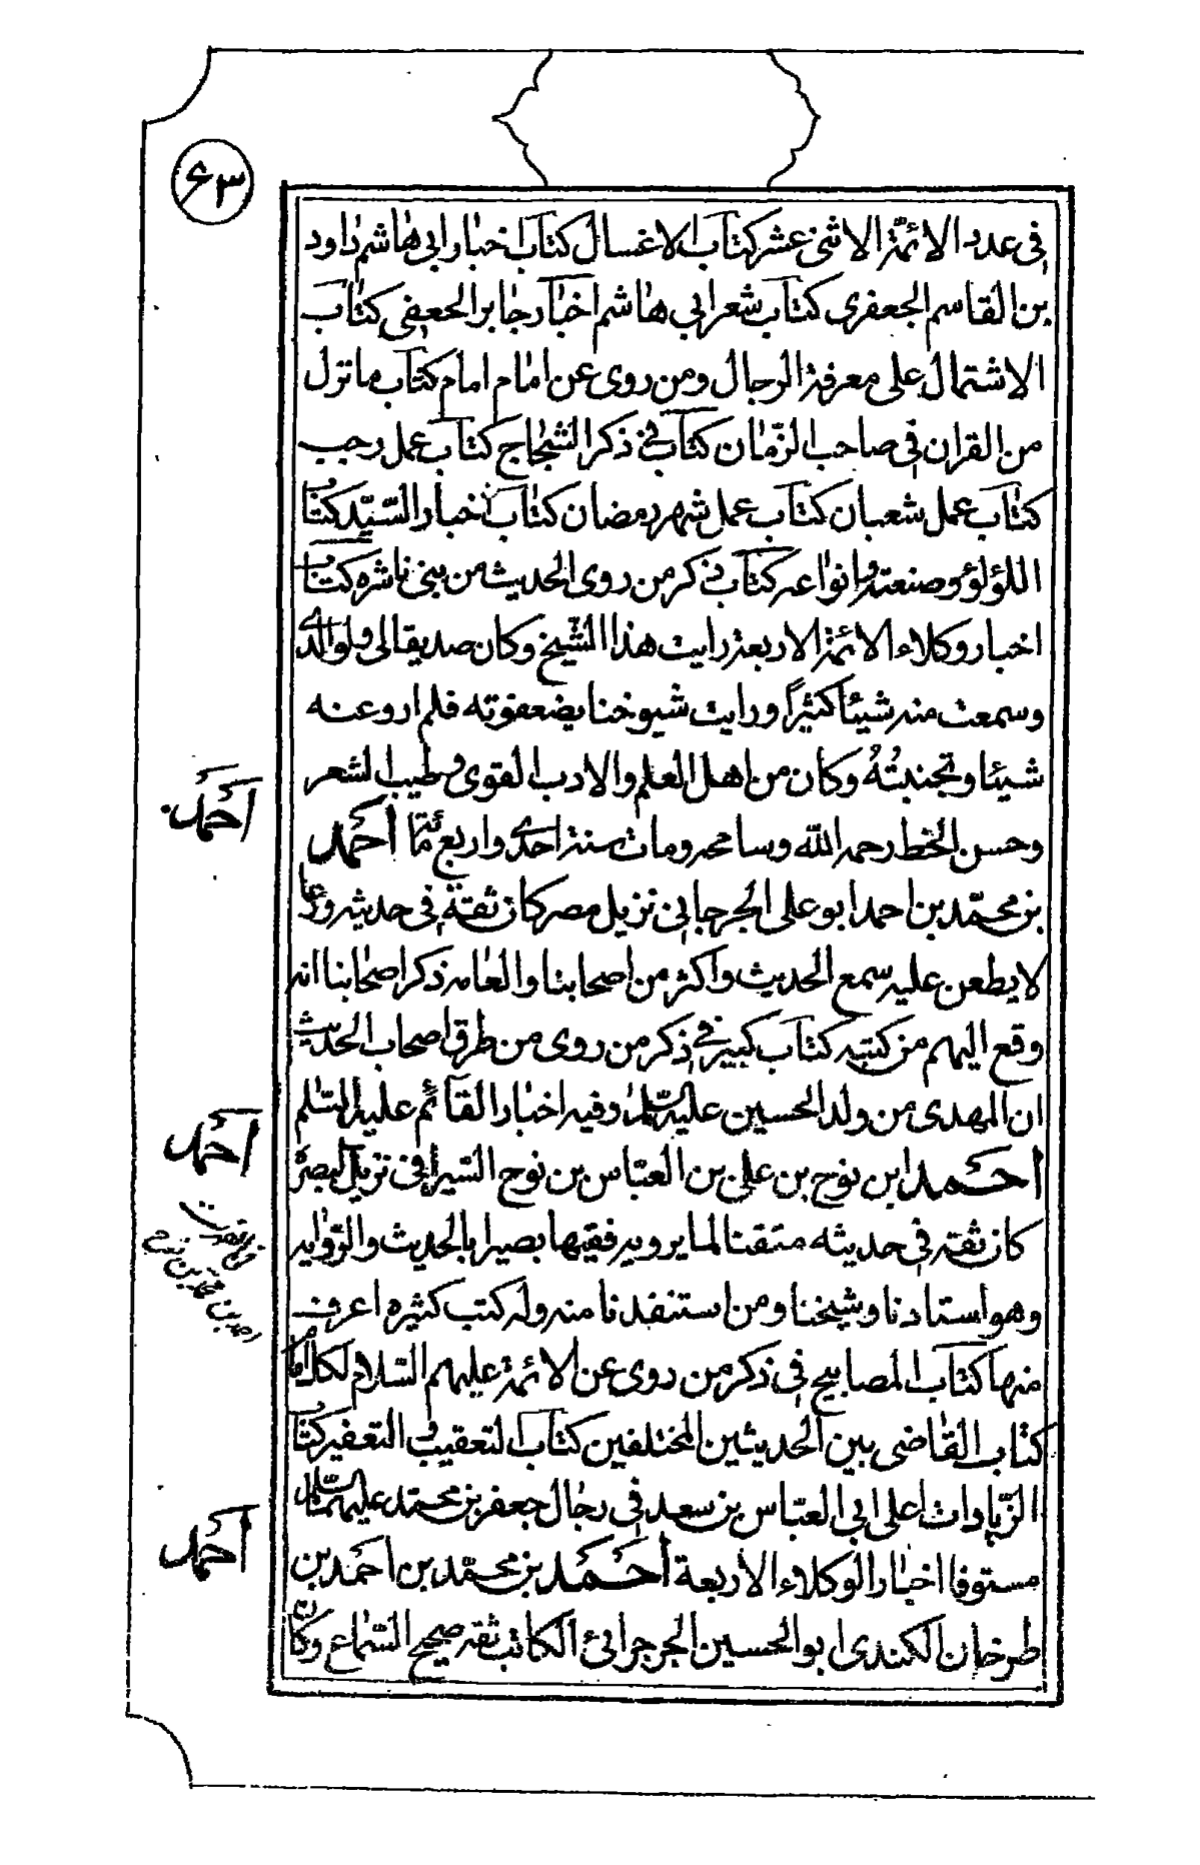 ۶۳
في عدد الائمّة الاثنى عشر كتاب الاغسال كتاب اخبار ابي هاشم داود
بن القاسم الجعفرى كتاب شعر ابي هاشم اخبار جابر الجعفي كتاب
الاشتمال على معرفة الرجال ومن روى عن امام امام كتاب ما نزل
من القران في صاحب الزّمان كتاب في ذكر الشجاج كتاب عمل رجب
كتاب عمل شعبان كتاب عمل شهر رمضان كتاب اخبار السّيّد كتاب
اللؤلؤ وصنعته وانواعه كتاب ذكر من روى الحديث من بني ناشره كتاب
اخبار وكلاء الائمة الاربعة رايت هذا الشّيخ وكان صديقا لى ولوالدى
وسمعت منه شيئا كثيرًا ورايت شيوخنا يضعفوته فلم اروعنه
شيئا وتجنبتُهُ وكان من اهل العلم والادب القوى وطيب الشعر
وحسن الخط رحمه الله وسامحه ومات سنة احدى واربع مائة أحمد
بن محمّد بن احمد ابو على الجرجاني نزيل مصر كان ثقة في حديثه ورعا
لا يطعن عليه سمع الحديث واكثر من اصحابنا والعامه ذكر اصحابنا انه
وقع اليهم من كتبه كتاب كبير في ذكر من روى من طرق اصحاب الحديث
ان المهدى من ولد الحسين عليه السّلم وفيه اخبار القآئم عليه السّلم
أحمد ابن نوح بن علي بن العبّاس بن نوح السّيرافي نزيل البصرة
كان ثقة في حديثه متقنا لما يرويه فقيها بصيرا بالحديث والرّوايه
وهو استادنا وشيخنا ومن استنفدنا منه وله كتب كثيره اعرف
منها كتاب المصابيح في ذكر من روى عن الائمة عليهم السّلام لكل امام
كتاب القاضى بين الحديثين المختلفين كتاب التعقيب و التعفير كتاب
الزّيادات على ابي العبّاس بن سعد في رجال جعفر بن محمّد عليهما السّلم
مستوفا اخبار الوكلاء الأربعة أحمد بن محمّد بن احمد بن
طرخان الكندى ابو الحسين الجرجرائي الكاتب ثقه صحيح السّماع وكان
أحمد
أحمد
أحمد